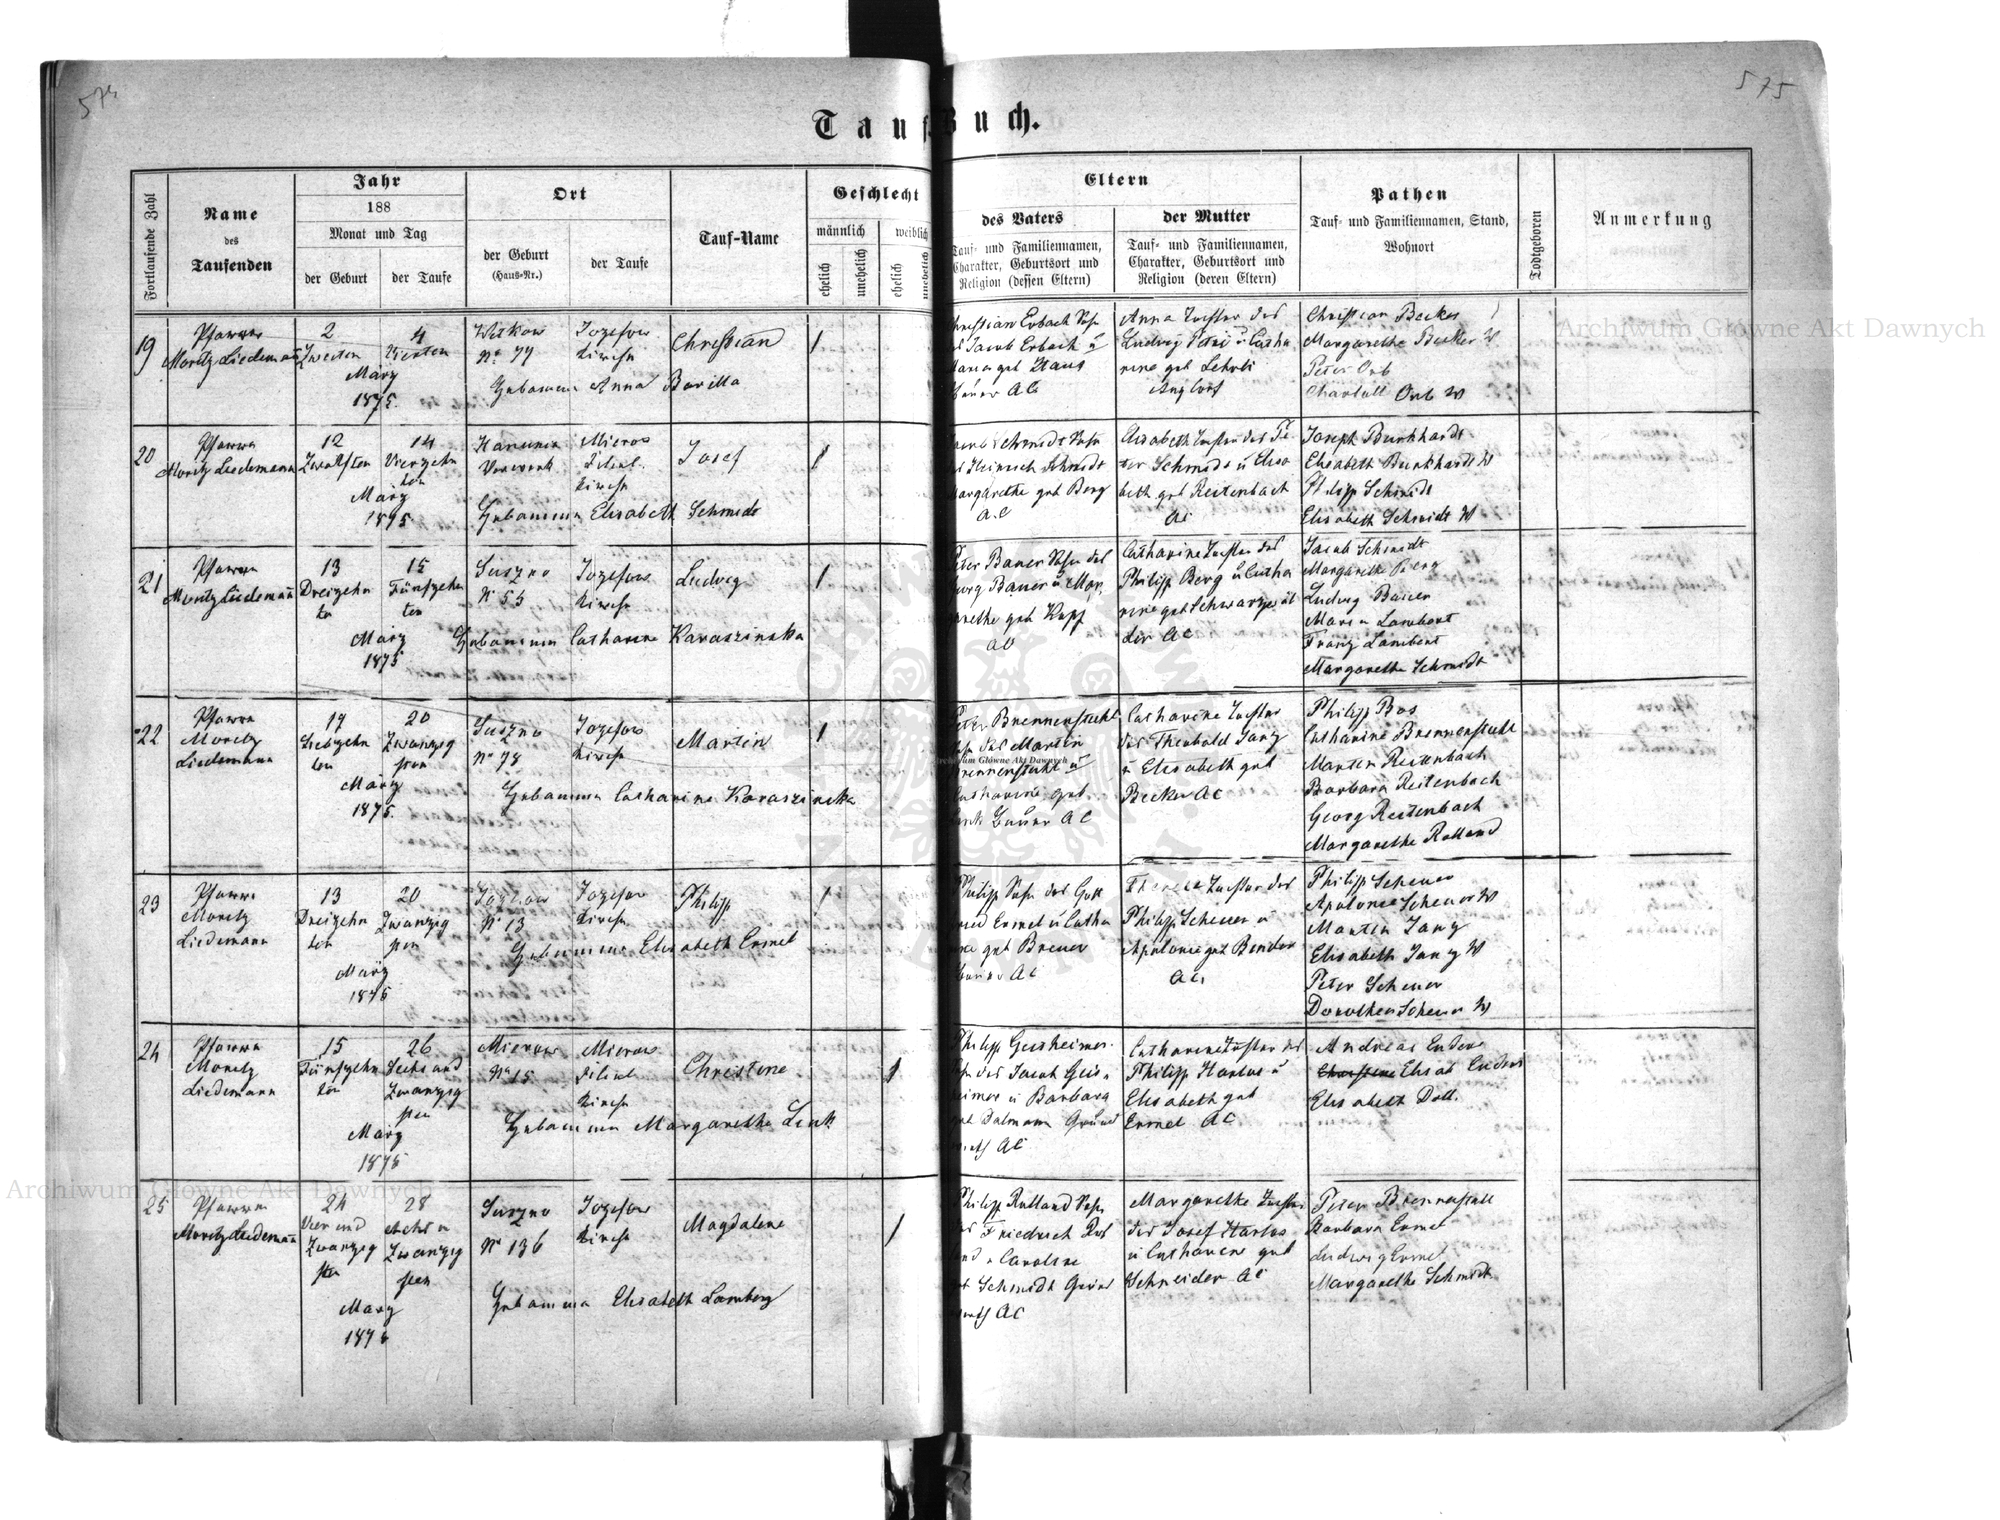 574
575
Tauf-Buch.
Fortlaufende Zahl
Name
des
Taufenden
Jahr
188
Monat und Tag
der Geburt
der Taufe
Ort
der Geburt
(Haus-Nr.)
der Taufe
Tauf-Name
Geschlecht
männlich
weiblich
ehelich
unehelich
ehelich
unehelich
Eltern
des Vaters
Tauf- und Familiennamen,
Charakter, Geburtsort und
Religion (dessen Eltern)
der Mutter
Tauf- und Familiennamen,
Charakter, Geburtsort und
Religion (deren Eltern)
Pathen
Tauf- und Familiennamen, Stand,
Wohnort
Todtgeboren
Anmerkung
19
Pfarrer
Moritz Liedemann
2
Zweiten
4
Vierten
März
1875.
Witkow
No 77
Jozefow
Kirche
Hebamme Anna Barilla
Christian
1
Christian Erbach Sohn
des Jacob Erbach u
Maria geb Haas
Bauer AC
Anna Tochter des
Ludwig u Catha
rine geb
Christian Becker
Margarethe Becker W
Peter Orb
Orb W
20
Pfarrer
Moritz Liedemann
12
Zwölften
14
Vierzehn
ten
März
1875
Hanunin
Vorwerk
Mierow
Filial
Kirche
Hebamme Elisabeth Schmidt
Josef
1
Schmidt Sohn
des Heinrich Schmidt
Margarethe geb Berg
A.C
Elisabeth Tochter des Pe
ter Schmidt u Elisa
beth geb Reitenbach
AC
Joseph Burkhardt
Elisabeth Burkhardt W
Philipp Schmidt
Elisabeth Schmidt W
21
Pfarrer
Moritz Liedemann
13
Dreizehn
ten
15
Fünfzehn
ten
März
1875
Suszno
No 55
Jozefow
Kirche
Hebamme Catharine Karaszinska
Ludwig
1
Peter Bauer Sohn des
Georg Bauer u Mar
garethe geb Kopf
AC
Catharine Tochter des
Philipp Berg u Catha
rine geb Schwarzwäl
der AC
Jacob Schmidt
Margarethe Berg
Ludwig Bauer
Maria Lambert
Franz Lambert
Margarethe Schmidt
22
Pfarrer
Moritz
Liedemann
17
Siebzehn
ten
20
Zwanzig
sten
März
1875.
Suszno
No 78
Jozefow
Kirche
Hebamme Catharine Karaszinska
Martin
1
Peter Brennenstuhl
Sohn des Martin
Brennenstuhl u
Catharine geb
Bauer AC
Catharine Tochter
des Theobald Janz
u Elisabeth geb
Becker AC
Philipp Bos
Catharine Brennenstuhl
Martin Reitenbach
Barbara Reitenbach
Georg Reitenbach
Margarethe Rolland
23
Pfarrer
Moritz
Liedemann
13
Dreizehn
ten
20
Zwanzig
sten
März
1875
Jozefow
No 13
Jozefow
Kirche
Hebamme Elisabeth Ermel
Philipp
1
Philipp Sohn des Gott
fried Ermel u Catha
rine geb Breuer
Bauer AC
Therese Tochter des
Philipp Scheuer u
Apolonia geb Binder
AC
Philipp Scheuer
Apolonia Scheuer W
Martin Janz
Elisabeth Janz W
Peter Scheuer
Dorothea Scheuer W
24
Pfarrer
Moritz
Liedemann
15
Fünfzehn
ten
26
Sechs und
Zwanzig
sten
März
1875
Mierow
No 15
Mierow
Filial
Kirche
Hebamme Margarethe Link
Christine
1
Philipp Geisheimer
Sohn des Jacob Geis
heimer u Barbara
geb Dalmann Grund
wirth AC
Catharine Tochter des
Philipp Harlos u
Elisabeth geb
Ermel AC
Andreas Enders
Christine Elisab Enders
Elisabeth Doll.
25
Pfarrer
Moritz Liedemann
24
Vier und
Zwanzig
sten
28
Acht u
Zwanzig
sten
März
1875
Suszno
No 136
Jozefow
Kirche
Hebamme Elisabeth Lamberg
Magdalene
1
Philipp Rolland Sohn
des Friedrich Rol
land u Caroline
geb Schmidt Grund
wirth AC
Margarethe Tochter
des Josef Harlos
u Catharine geb
Schneider AC
Peter Brennenstuhl
Barbara Ermel
Ludwig Ermel
Margarethe Schmidt
Archiwum Główne Akt Dawnych
Archiwum Główne Akt Dawnych
Archiwum Główne Akt Dawnych